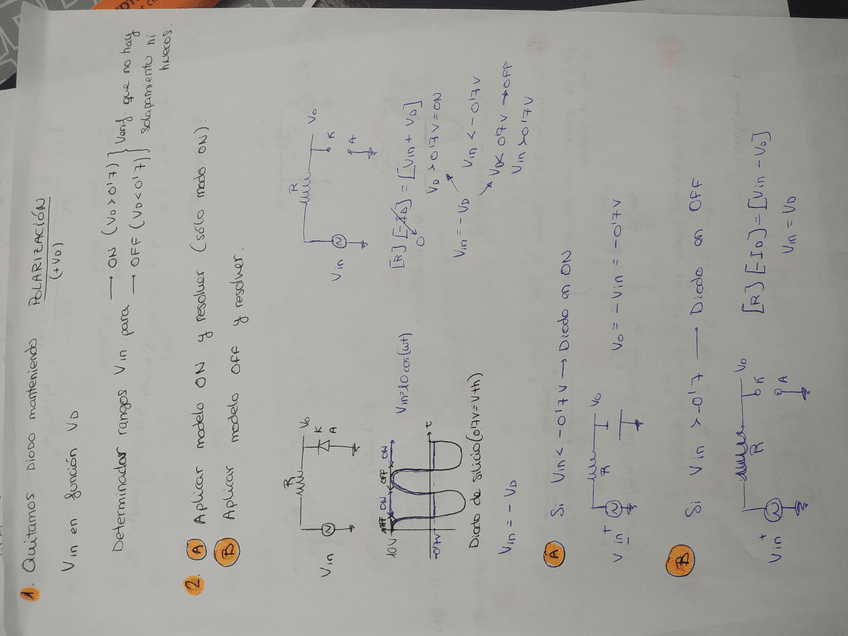 1. Quitamos DIODO manteniendo POLARIZACIÓN
(+VD)
Vin en función VD
Determinador rangos Vin para → ON (VD>0'7) } Verif que no hay
→ OFF (VD<0'7) } solapamiento ni
huecos.
2. A Aplicar modelo ON y resolver (sólo modo ON).
B Aplicar modelo OFF y resolver.
R
Vo
K
A
Vin
R
Vo
K
A
Vin
10V
OFF ON OFF ON
t
-0'7V
Vin=10cos(wt)
Diodo de silicio (0'7V=Vth)
Vin = - VD
[R] [-ID] = [Vin + VD]
0
VD > 0'7V = ON
Vin = - VD
Vin < -0'7V
VD < 0'7V → OFF
Vin > 0'7V
A Si Vin < -0'7V → Diodo en ON
R
Vo
Vin
+
Vo = - Vin = -0'7V
B Si Vin > -0'7 → Diodo en OFF
R
Vo
K
A
Vin
+
[R] [-ID] = [Vin - VD]
Vin = VD